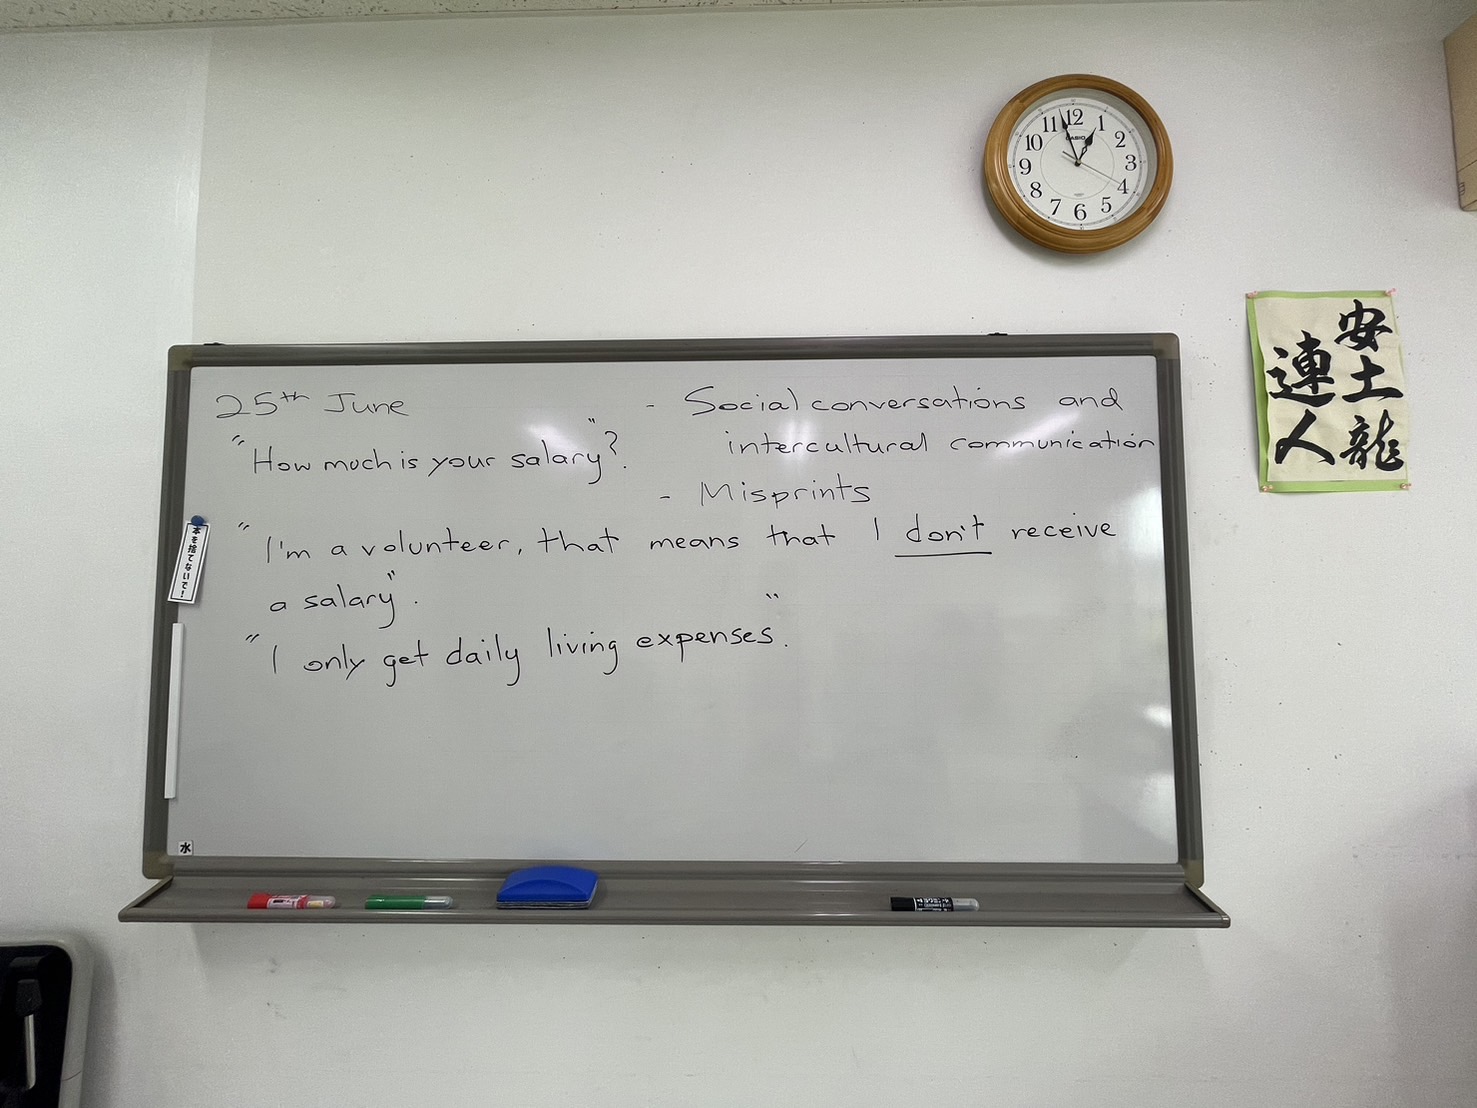 12
1
2
3
4
5
6
7
8
9
10
11
CASIO
安土龍
連人
25th June
- Social conversations and
intercultural communication
"How much is your salary"?
- Misprints
"I'm a volunteer, that means that I don't receive
a salary".
"I only get daily living expenses".
本を捨てないで!
水